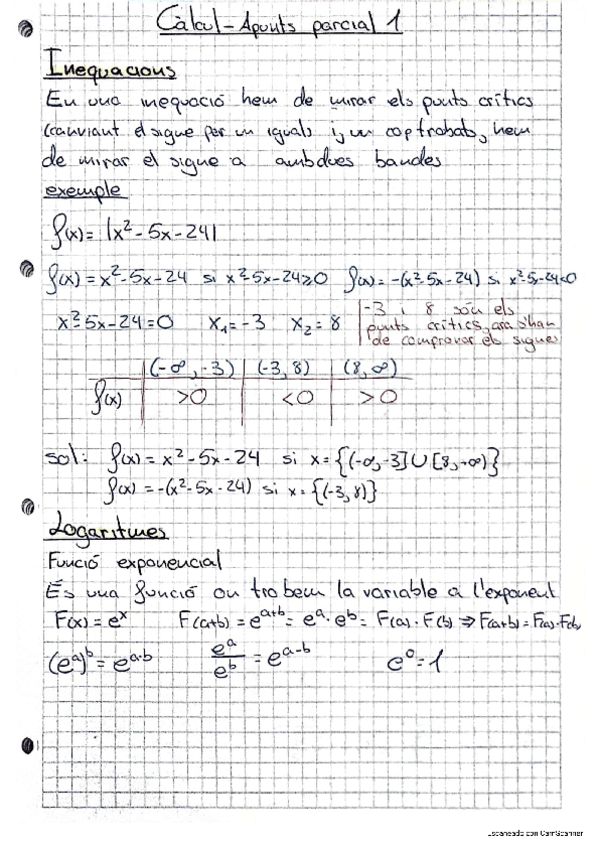 Càlcul - Apunts parcial 1
Inequacions
En una inequació hem de mirar els punts crítics
(canviant el signe per un igual) i, un cop trobats, hem
de mirar el signe a ambdues bandes
exemple
f(x) = |x² - 5x - 24|
f(x) = x² - 5x - 24 si x² - 5x - 24 ≥ 0 f(x) = -(x² - 5x - 24) si x² - 5x - 24 < 0
x² - 5x - 24 = 0 x₁ = -3 x₂ = 8
-3 i 8 són els
punts crítics, ara s'han
de comprovar els signes
(-∞, -3) (-3, 8) (8, ∞)
f(x) >0 <0 >0
sol: f(x) = x² - 5x - 24 si x = {(-∞, -3] ∪ [8, +∞)}
f(x) = -(x² - 5x - 24) si x = {(-3, 8)}
Logaritmes
Funció exponencial
És una funció on trobem la variable a l'exponent
F(x) = eˣ F(a+b) = eᵃ⁺ᵇ = eᵃ · eᵇ = F(a) · F(b) ⇒ F(a+b) = F(a) · F(b)
(eᵃ)ᵇ = eᵃ·ᵇ eᵃ/eᵇ = eᵃ⁻ᵇ e⁰ = 1
Escaneado con CamScanner